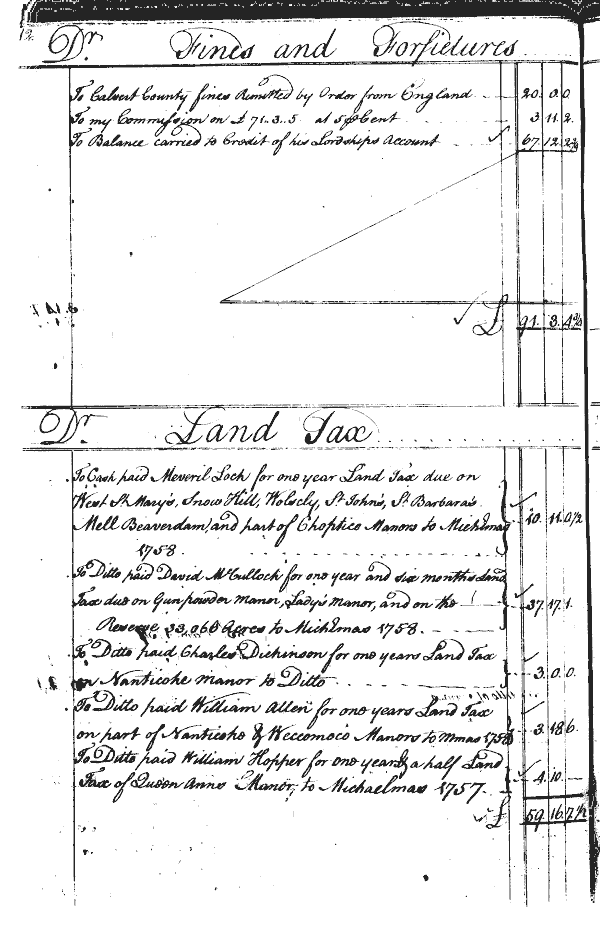 12.
Dr. Fines and Forfietures
To Calvert County fines Remitted by Order from England 20. 0. 0.
To my Commission on £ 71. 3. 5 at 5 ⅌ Cent 3. 11. 2.
To Balance carried to Credit of his Lordships Account 67. 12. 2¾
£ 91. 3. 4¾
Dr. Land Tax
To Cash paid Meveril Loch for one year Land Tax due on
West St. Mary's, Snow Hill, Wolsely, St. John's, St. Barbara's
Mell Beaverdam, and part of Choptico Manors to Michlmas 10. 11. 0½
1758.
To Ditto paid David McCulloch for one year and six months Land
Tax due on Gunpowder Manor, Lady's Manor, and on the 37. 17. 1.
Reserve 33,068 Acres to Michlmas 1758.
To Ditto paid Charles Dickinson for one years Land Tax
on Nanticoke Manor to Ditto 3. 0. 0.
To Ditto paid William Allen for one years Land Tax
on part of Nanticoke & Weccomoco Manors to Mmas 1758 3. 18. 6.
To Ditto paid William Hopper for one year & a half Land
Tax of Queen Anns Manor, to Michaelmas 1757. 4. 10. —
£ 59. 16. 7½